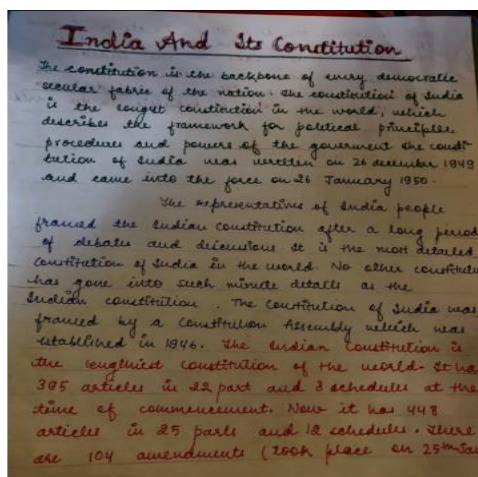 India And Its Constitution
The constitution is the backbone of every democratic
secular fabric of the nation. The constitution of India
is the longest constitution in the world, which
describes the framework for political principles
procedures and powers of the government the consti
tution of India was written on 26 december 1949
and came into the force on 26 January 1950.
The representatives of India people
framed the Indian constitution after a long period
of debates and discussions It is the most detailed
constitution of India in the world. No other constitu
has gone into such minute details as the
Indian constitution. The Constitution of India was
framed by a Constitution Assembly which was
established in 1946. The Indian Constitution is
the lengthiest constitution of the world. It ha
395 articles in 22 part and 8 schedules at the
time of commencement. Now it has 448
articles in 25 parts and 12 schedules. There
are 104 amendments (took place on 25th Jan